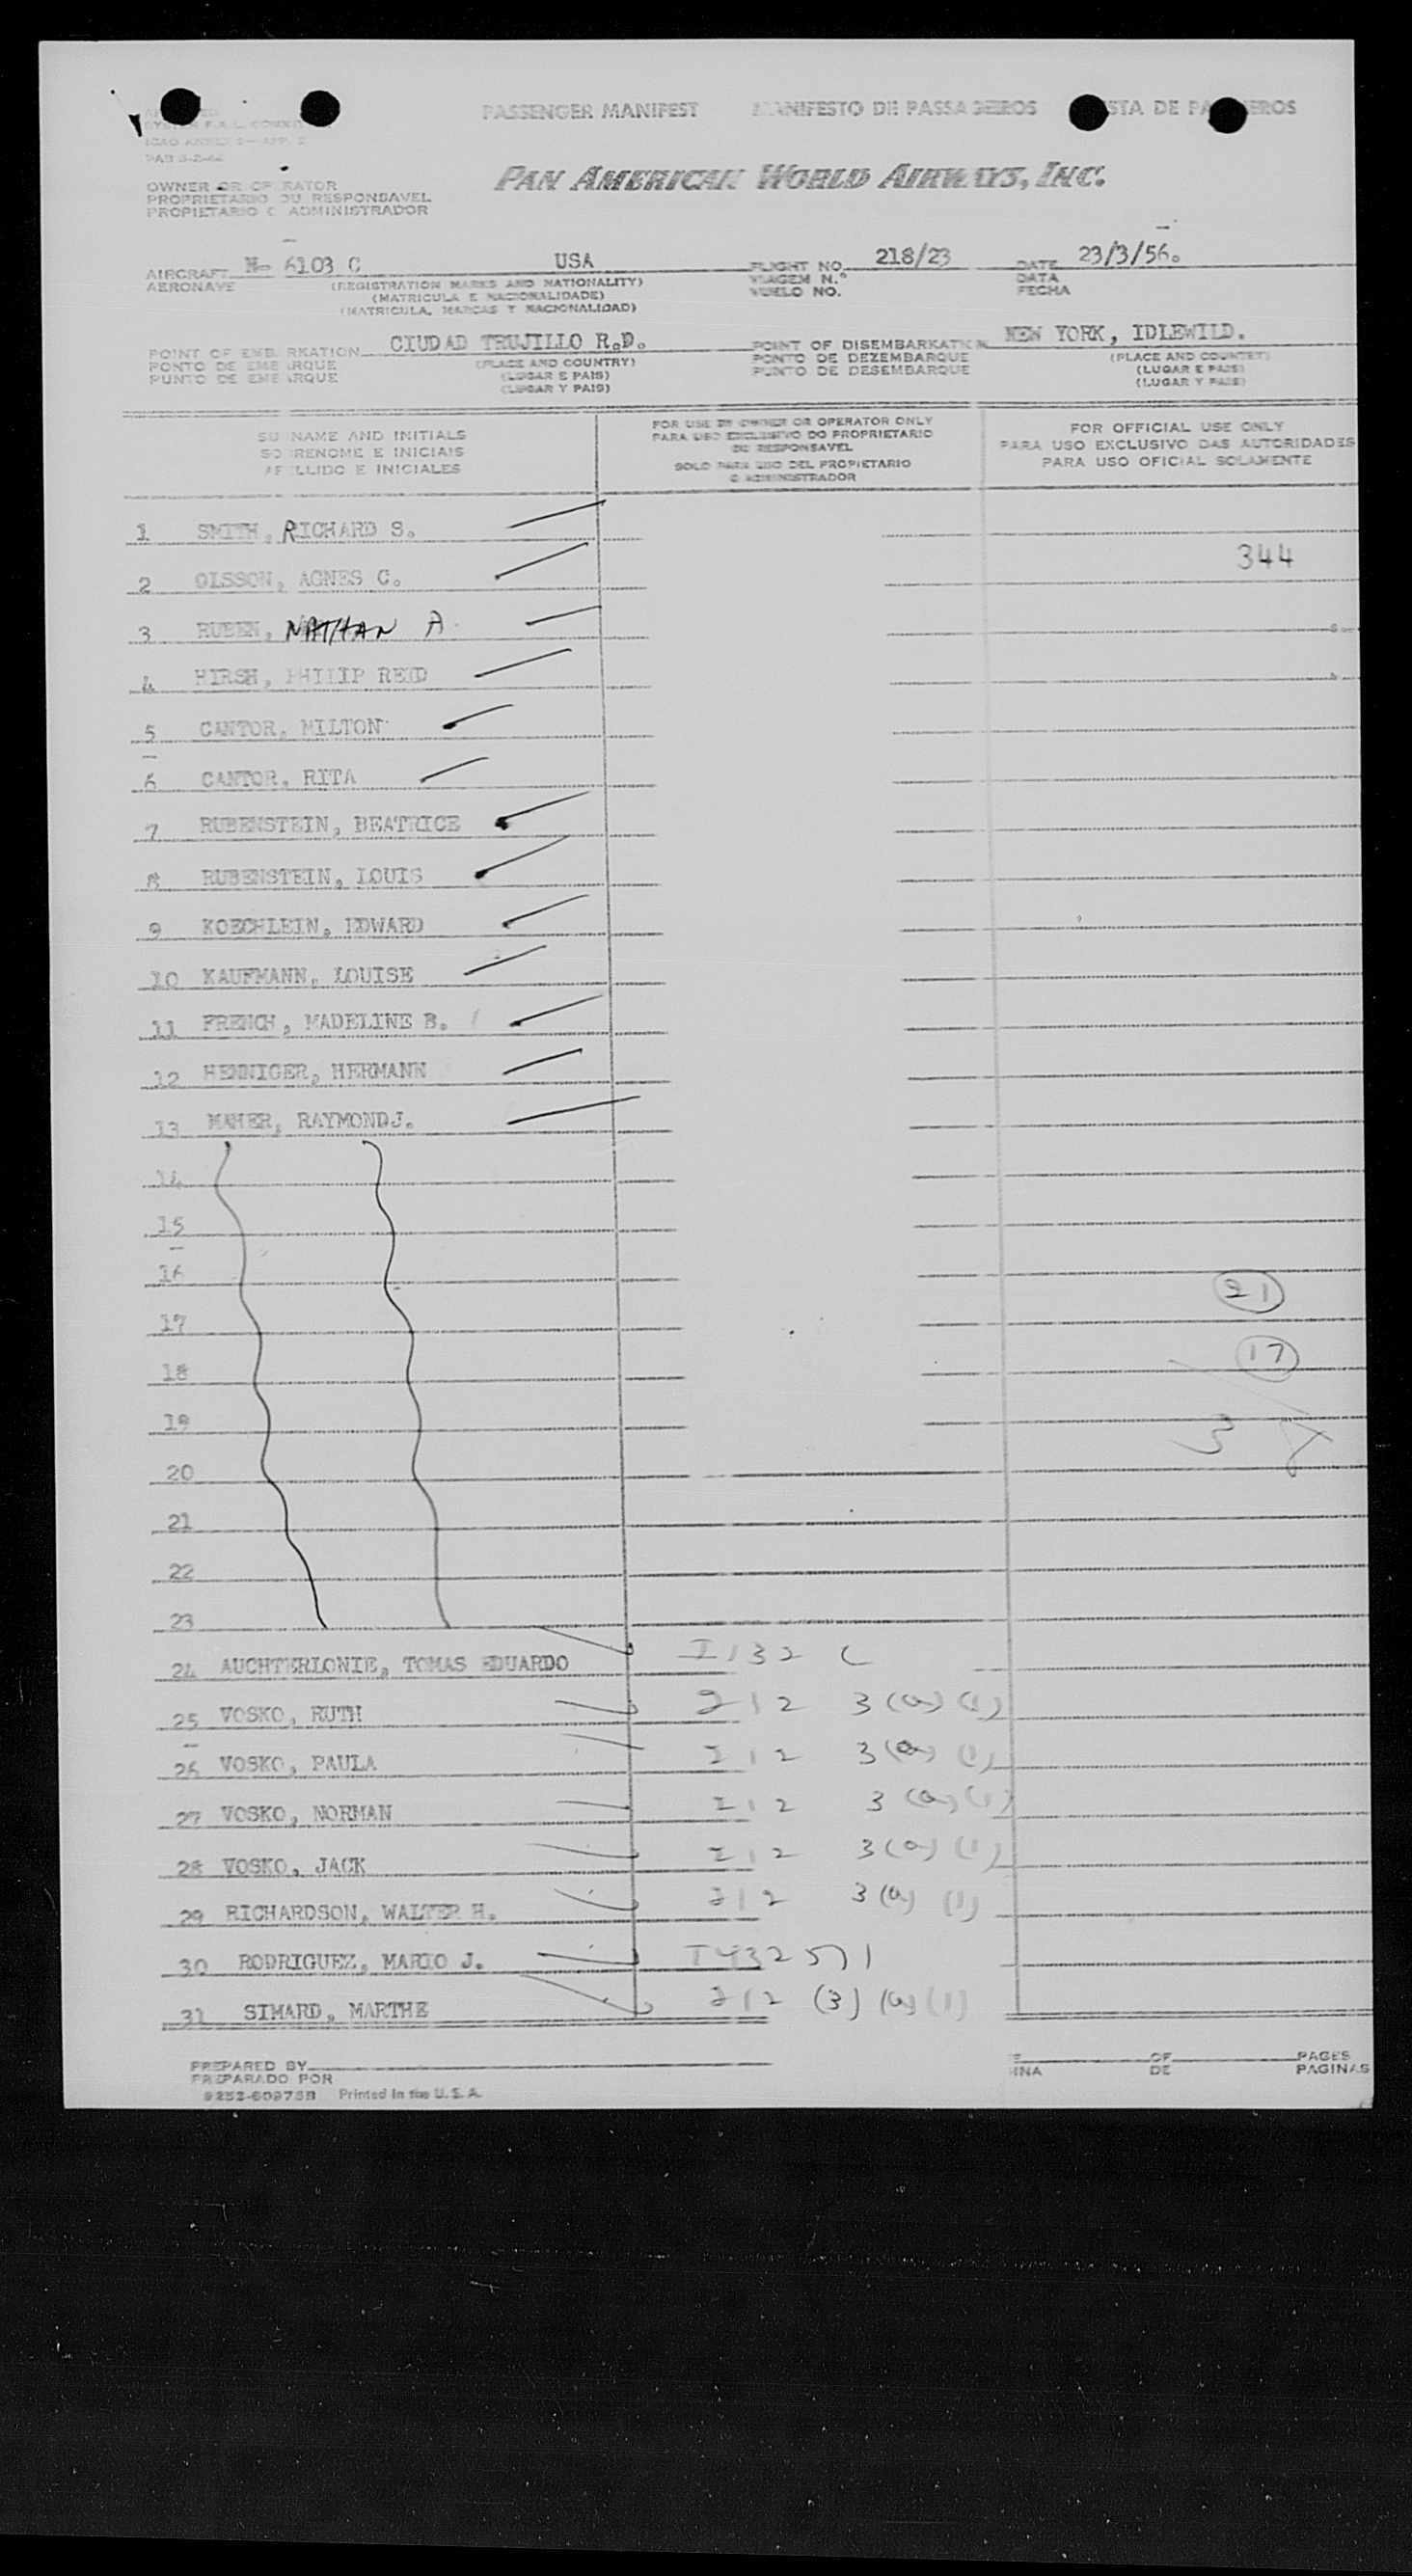 PASSENGER MANIFEST MANIFESTO DE PASSAGEIROS LISTA DE PASAJEROS
PAN AMERICAN WORLD AIRWAYS, INC.
OWNER OR OPERATOR
PROPRIETARIO OU RESPONSAVEL
PROPIETARIO O ADMINISTRADOR
AIRCRAFT N- 6103 C USA FLIGHT NO. 218/23 DATE 23/3/56.
AERONAVE (REGISTRATION MARKS AND NATIONALITY) VIAGEM N.º DATA
(MATRICULA E NACIONALIDADE) VUELO NO. FECHA
(MATRICULA, MARCAS Y NACIONALIDAD)
POINT OF EMBARKATION CIUDAD TRUJILLO R.D. POINT OF DISEMBARKATION NEW YORK, IDLEWILD.
PONTO DE EMBARQUE (PLACE AND COUNTRY) PONTO DE DEZEMBARQUE (PLACE AND COUNTRY)
PUNTO DE EMBARQUE (LUGAR E PAIS) PUNTO DE DESEMBARQUE (LUGAR E PAIS)
(LUGAR Y PAIS) (LUGAR Y PAIS)
SURNAME AND INITIALS
SOBRENOME E INICIAIS
APELLIDO E INICIALES
FOR USE BY OWNER OR OPERATOR ONLY
PARA USO EXCLUSIVO DO PROPRIETARIO
OU RESPONSAVEL
SOLO PARA USO DEL PROPIETARIO
O ADMINISTRADOR
FOR OFFICIAL USE ONLY
PARA USO EXCLUSIVO DAS AUTORIDADES
PARA USO OFICIAL SOLAMENTE
1 SMITH, RICHARD S.
344
2 OLSSON, AGNES C.
3 RUBEN, NATHAN A.
4 HIRSH, PHILIP REID
5 CANTOR, MILTON
6 CANTOR, RITA
7 RUBENSTEIN, BEATRICE
8 RUBENSTEIN, LOUIS
9 KOECHLEIN, EDWARD
10 KAUFMANN, LOUISE
11 FRENCH, MADELINE B.
12 HENNIGER, HERMANN
13 MAHER, RAYMONDJ.
14
15
16
21
17
17
18
19
3
20
21
22
23
24 AUCHTERLONIE, TOMAS EDUARDO I 132 C
25 VOSKO, RUTH 212 3(a)(1)
26 VOSKO, PAULA 212 3(a)(1)
27 VOSKO, NORMAN 212 3(a)(1)
28 VOSKO, JACK 212 3(a)(1)
29 RICHARDSON, WALTER H. 212 3(a)(1)
30 RODRIGUEZ, MARIO J. I 432571
31 SIMARD, MARTHE 212 (3)(a)(1)
PREPARED BY OF PAGES
PREPARADO POR DE PAGINAS
9252-609738 Printed in the U.S.A.